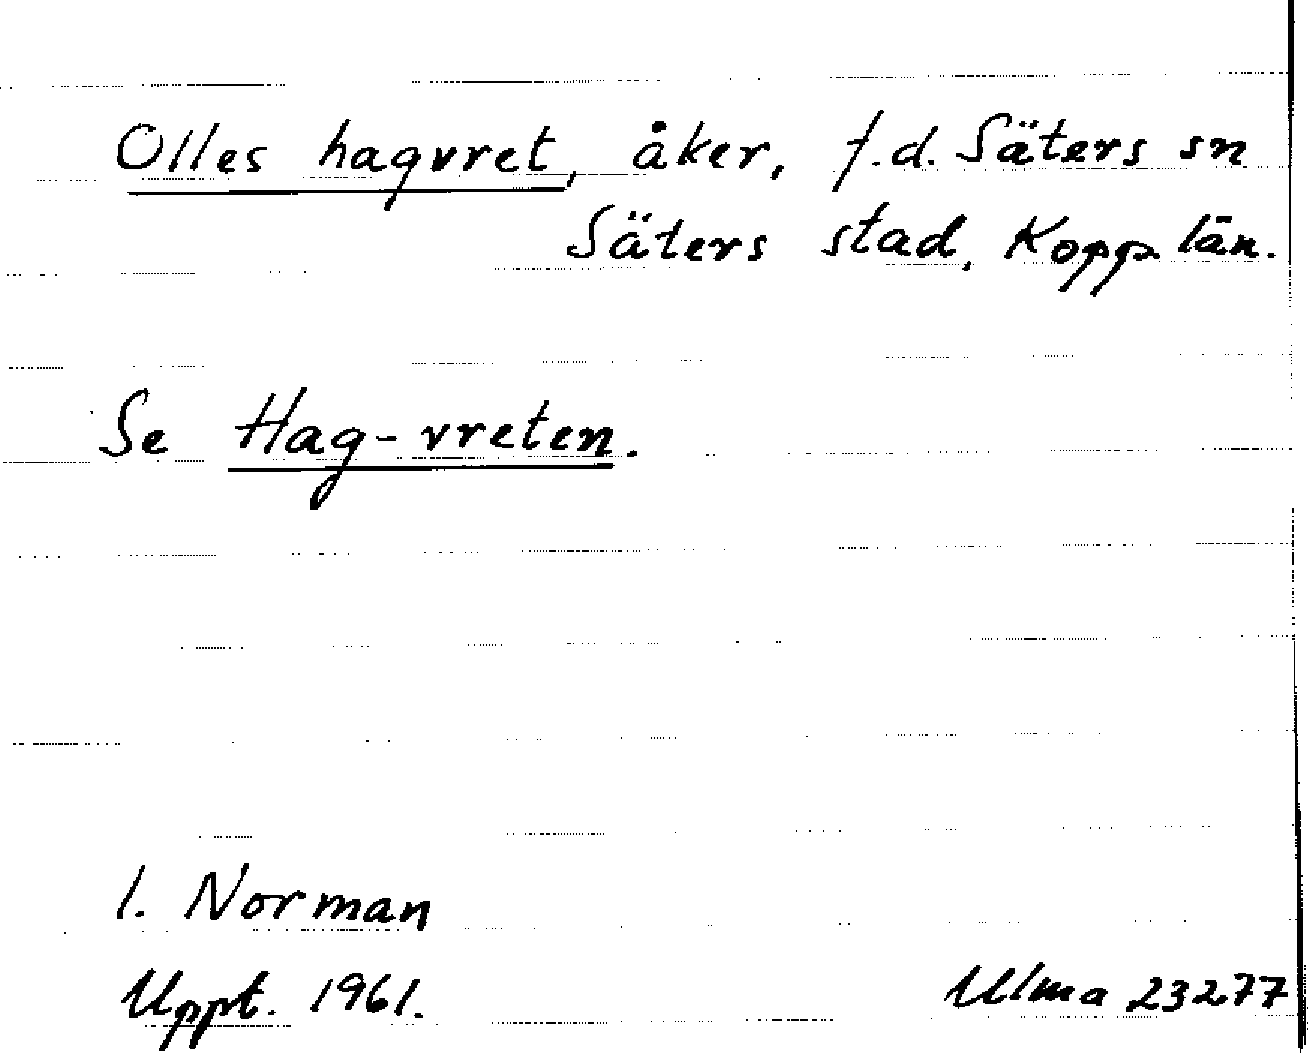 Olles hagvret, åker, f.d. Säters sn
Säters stad, Kopp län.
Se Hag-vreten.
I. Norman
Uppt. 1961. Ulma 23277